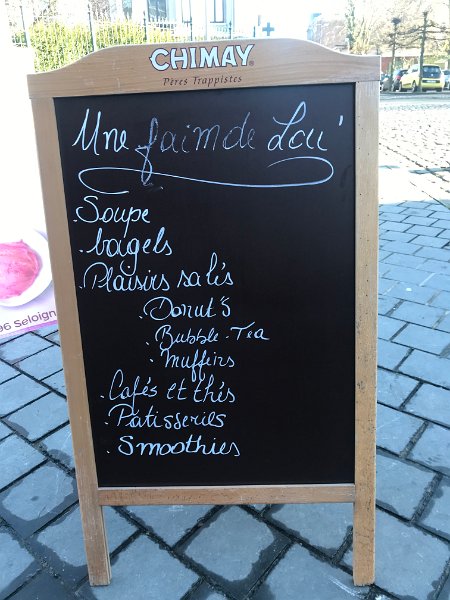 CHIMAY®
Pères Trappistes
Une faim de Lou'
.Soupe
.bagels
.Plaisirs salés
.Donut's
.Bubble-Tea
.Muffins
.Cafés et thés
.Pâtisseries
.Smoothies
96 Seloign